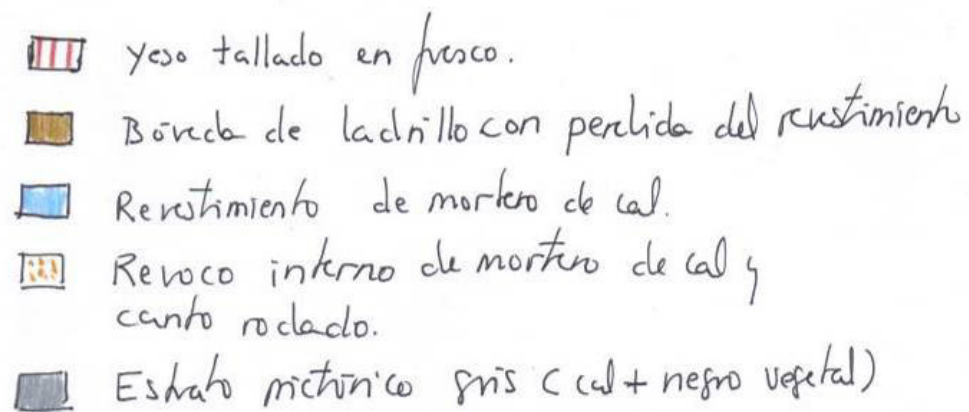 Yeso tallado en fresco.
Bóveda de ladrillo con perdida del revestimiento
Revestimiento de mortero de cal.
Revoco interno de mortero de cal y
canto rodado.
Estrato pictórico gris (cal + negro vegetal)